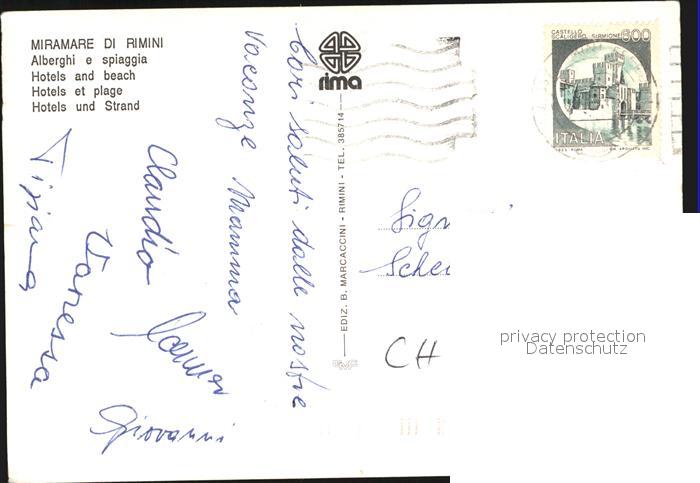 MIRAMARE DI RIMINI
Alberghi e spiaggia
Hotels and beach
Hotels et plage
Hotels und Strand
Cari saluti dalle nostre
vacanze Mamma
Claudio
Vanessa
Tiziana
Giovanni
rima
EDIZ. B. MARCACCINI - RIMINI - TEL. 385714
CASTELLO
SCALIGERO. SIRMIONE
600
ITALIA
Sign
Sche
CH
privacy protection
Datenschutz